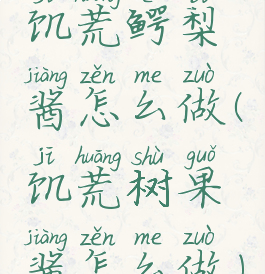 饥荒鳄梨
jiàng zěn me zuò
酱怎么做(
jī huāng shù guǒ
饥荒树果
jiàng zěn me zuò
酱怎么做)